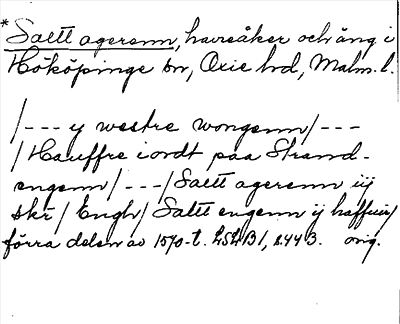 *Saltt agerenn, havreåker och äng i
Hököpinge sn, Oxie hd, Malm. l.
/--- y westre wongenn/---
/Hauffre iordt paa Strand-
engenn/---/Saltt agerenn iij
skr/ Engh/ Saltt engenn ij
förra delen av 1570-t. LSLB1, s. 443. orig.